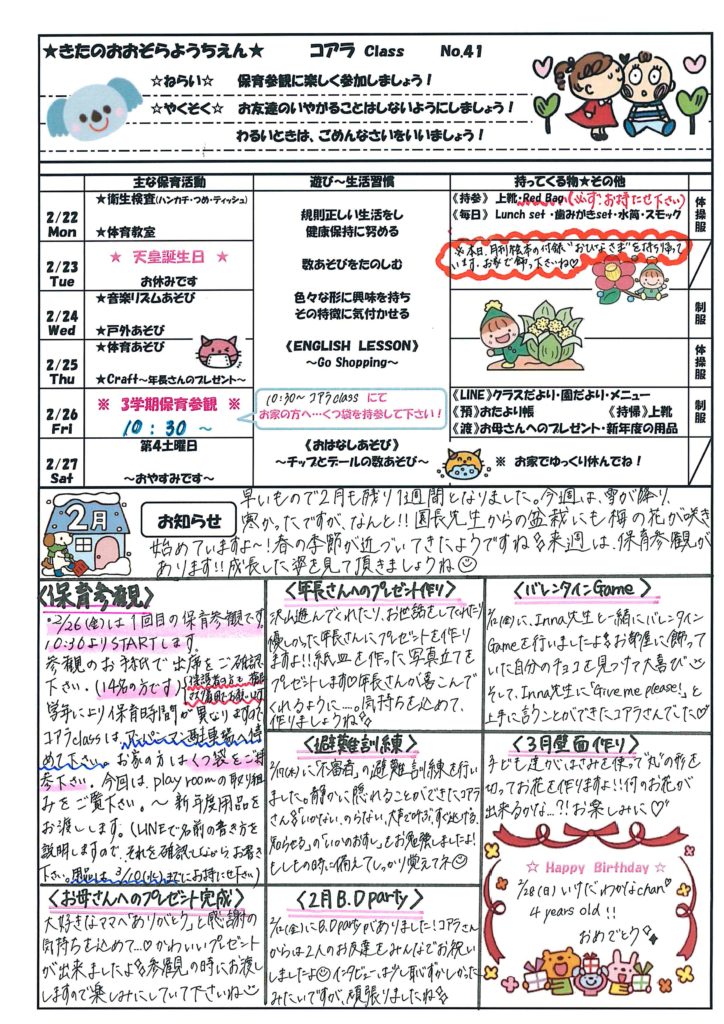 ★きたのおおぞらようちえん★ コアラ Class No.41
☆ねらい☆ 保育参観に楽しく参加しましょう！
☆やくそく☆ お友達のいやがることはしないようにしましょう！
わるいときは、ごめんなさいをいいましょう！
主な保育活動 遊び～生活習慣 持ってくる物★その他
2/22 Mon
★衛生検査(ハンカチ・つめ・ティッシュ)
★体育教室
規則正しい生活をし
健康保持に努める
《持参》上靴・Red Bag(必ずお持たせ下さい)
《毎日》Lunch set・歯みがきset・水筒・スモック
体操服
2/23 Tue
★ 天皇誕生日 ★
お休みです
数あそびをたのしむ
※本日、月刊絵本の付録、"おひなさま"を持ち帰って
います。お家で飾って下さいね♡
2/24 Wed
★音楽リズムあそび
★戸外あそび
色々な形に興味を持ち
その特徴に気付かせる
制服
2/25 Thu
★体育あそび
★Craft～年長さんのプレゼント～
《ENGLISH LESSON》
～Go Shopping～
体操服
2/26 Fri
※ 3学期保育参観 ※
10:30 ～
10:30～ コアラclass にて
お家の方へ…くつ袋を持参して下さい！
《LINE》クラスだより・園だより・メニュー
《預》おたより帳 《持帰》上靴
《渡》お母さんへのプレゼント・新年度の用品
制服
2/27 Sat
第4土曜日
～おやすみです～
《おはなしあそび》
～チップとデールの数あそび～
※ お家でゆっくり休んでね！
2月
お知らせ
早いもので2月も残り1週間となりました。今週は、雪が降り、
寒かったですが、なんと!!園長先生からの盆栽にも梅の花が咲き
始めていますよ～！春の季節が近づいてきたようですね。来週は、保育参観が
あります!!成長した姿を見て頂きましょうね
〈保育参観〉
・2/26(金)は1回目の保育参観です。
10:30よりSTARTします。
参観のお手紙で出席をご確認
下さい。(14名の方です)
学年により保育時間が異なりますので
コアラclassは、アンパンマン駐車場へ停
めて下さい。お家の方は、くつ袋をご持
参下さい。今回は、play roomの取り組
みをご覧下さい。～新年度用品を
お渡しします。(LINEで名前の書き方を
説明しますので、それを確認しながらお書き
下さい。用品は、3/10(水)までにお持たせ下さい)
〈お母さんへのプレゼント完成〉
大好きなママへ「ありがとう」と感謝の
気持ちを込めて…♡かわいいプレゼント
が出来ましたよ。参観の時にお渡し
しますので楽しみにしていて下さいね
〈年長さんへのプレゼント作り〉
沢山遊んでくれたり、お世話をしてくれたり
優しかった年長さんにプレゼントを作り
ますよ!!紙皿を作った写真立てを
プレゼントします♡年長さんが喜こんで
くれるように…。気持ちを込めて、
作りましょうね
〈避難訓練〉
2/17(水)に「不審者」の避難訓練を行い
ました。静かに隠れることができたコアラ
さん。「いかない、のらない、大声で叫ぶ、すぐ逃げる、
知らせる」の「いかのおすし」をお勉強しましたよ！
もしもの時に備えてしっかり覚えてネ
〈2月 B.D party〉
2/12(金)にB.D partyがありました！コアラさん
からは2人のお友達をみんなでお祝い
しましたよインタビューは少し恥ずかしかった
みたいですが、頑張りましたね
〈バレンタインGame〉
2/12(金)に、Inna先生と一緒にバレンタイン
Gameを行いましたよ。お部屋に飾って
いた自分のチョコを見つけて大喜び
そして、Inna先生に「Give me please!」と
上手に言うことができたコアラさんでした♡
〈3月壁面作り〉
子ども達がはさみを使って"丸"の形を
切ってお花を作りますよ!!何のお花が
出来るかな…?!お楽しみに♡
☆ Happy Birthday ☆
2/28(日)いけだわかなchan
4 years old!!
おめでとう